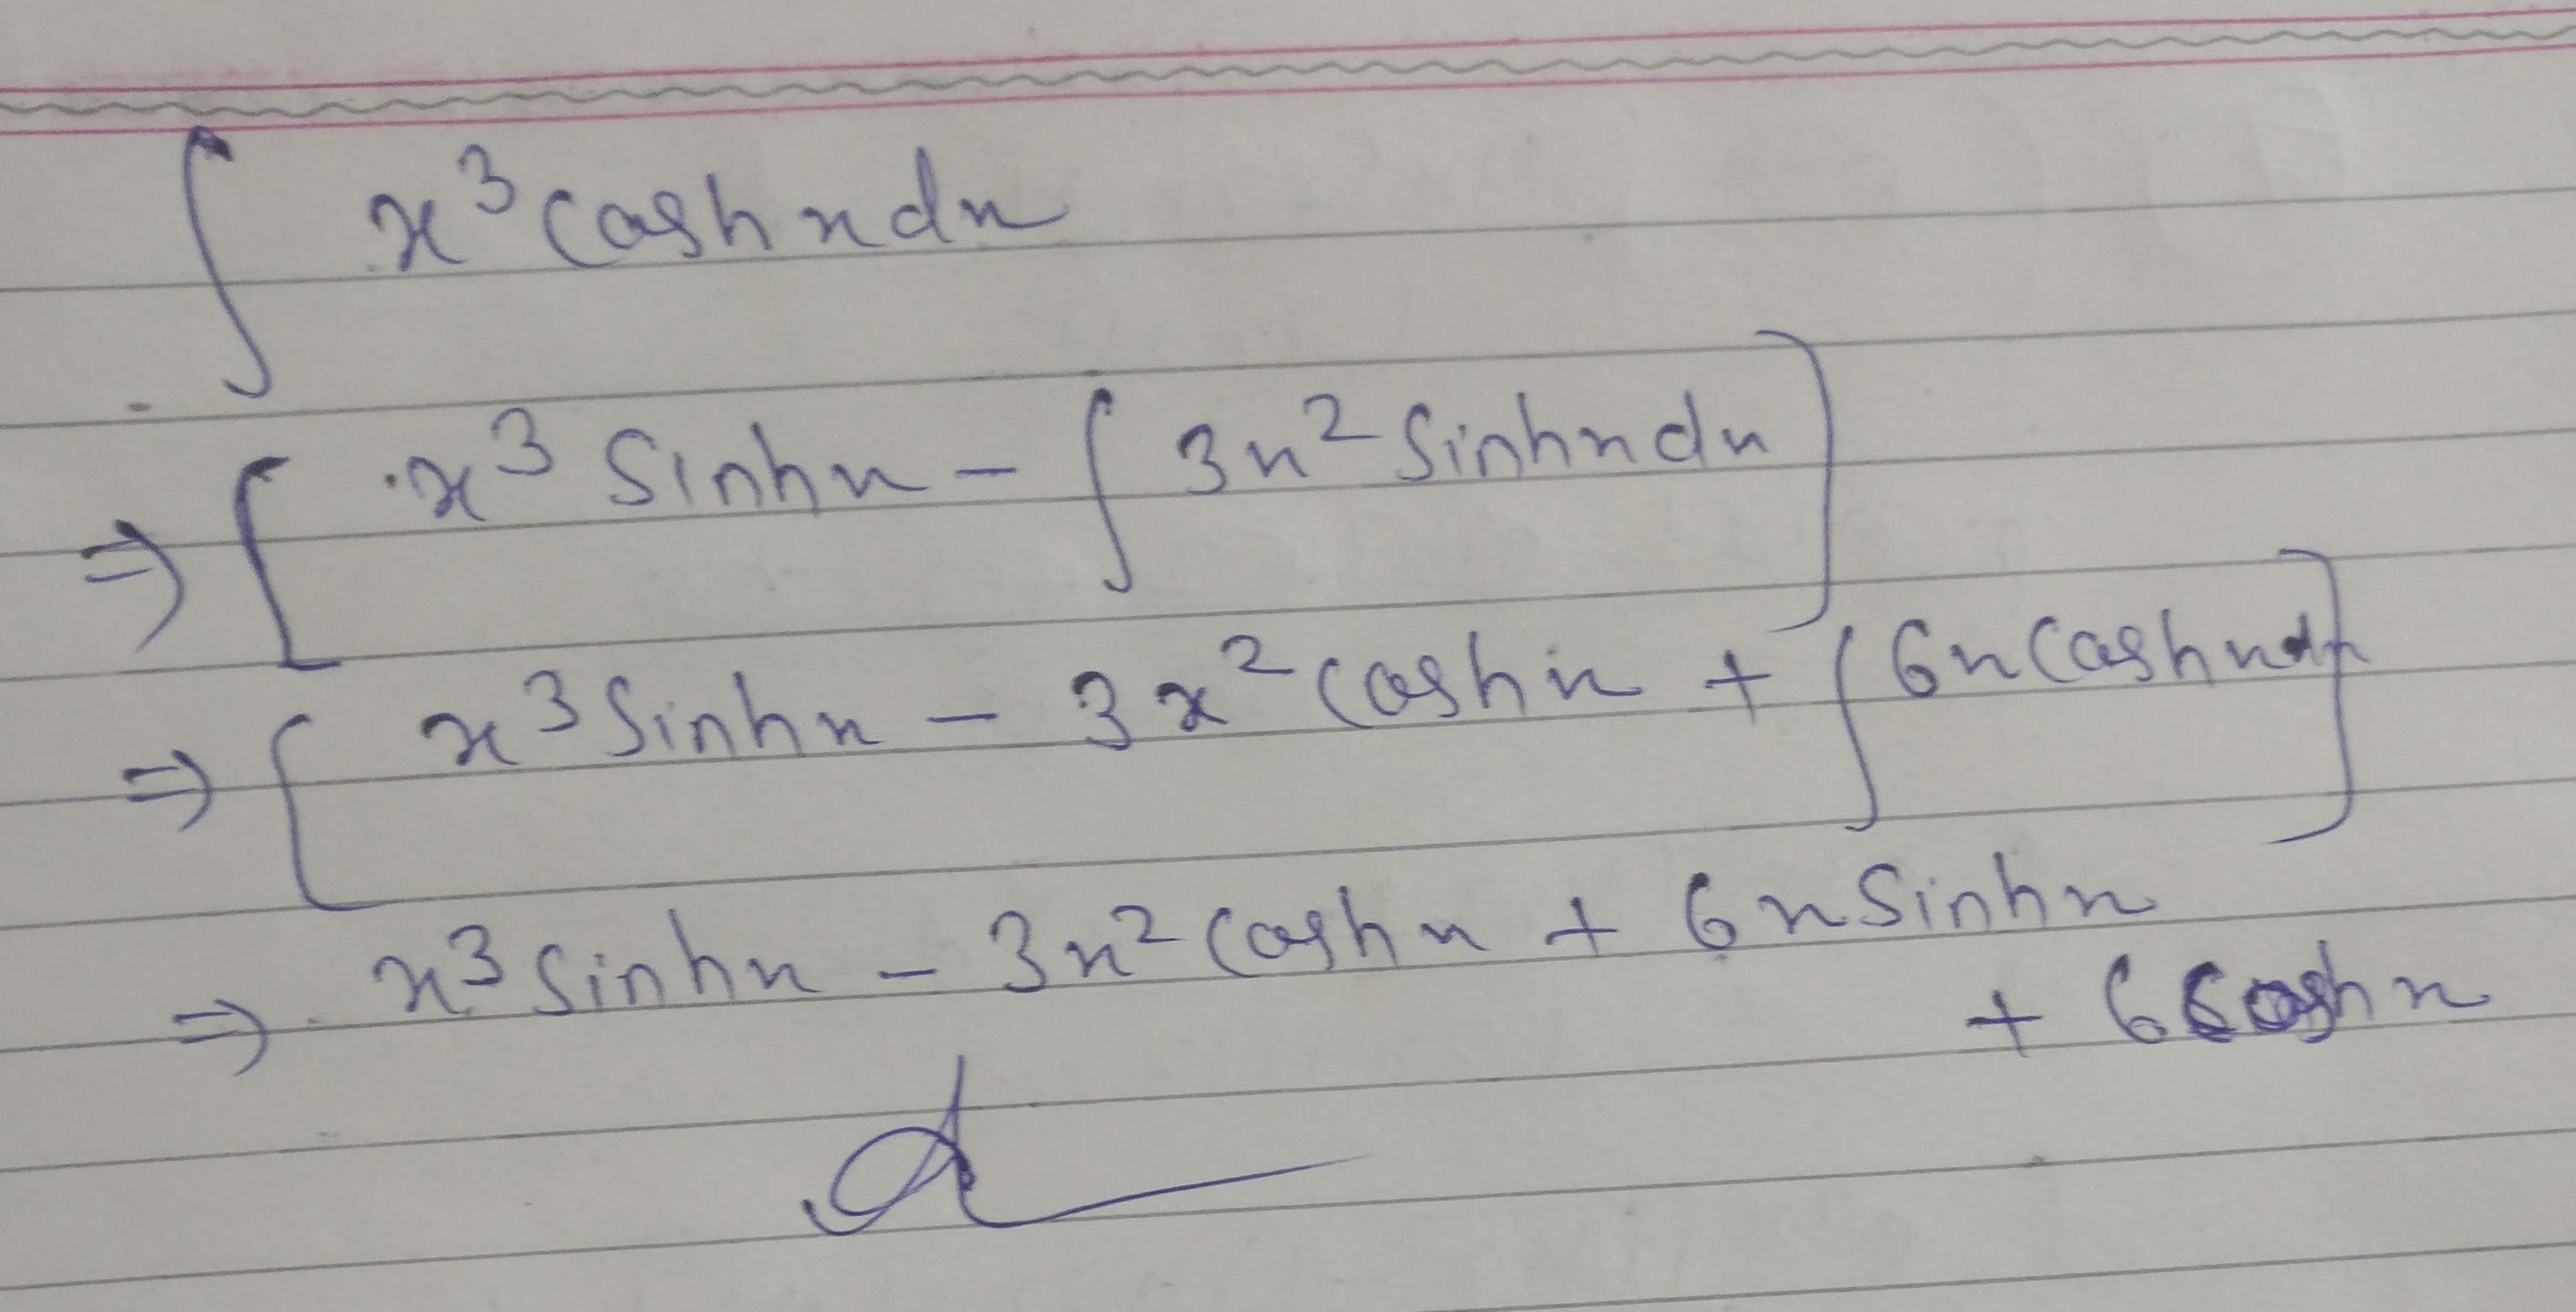 ∫ x³ cosh x dx
⇒ [ x³ sinh x − ∫ 3x² sinh x dx ]
⇒ [ x³ sinh x − 3x² cosh x + ∫ 6x cosh x dx ]
⇒ x³ sinh x − 3x² cosh x + 6x sinh x
+ 6 cosh x